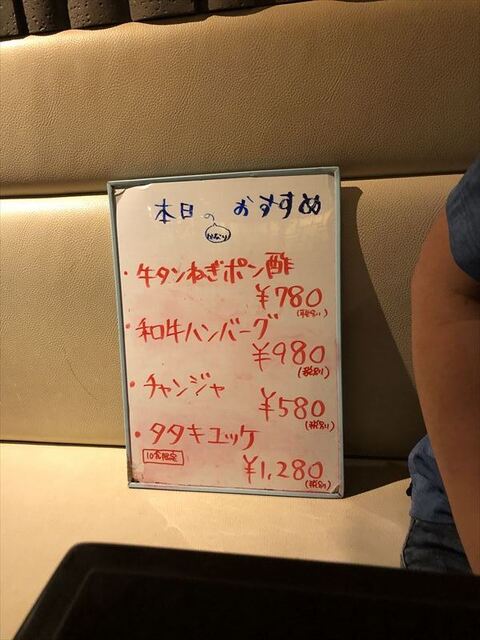 本日の おすすめ
かなり
・牛タンねぎポン酢
¥780
(税別)
・和牛ハンバーグ
¥980
(税別)
・チャンジャ
¥580
(税別)
・タタキユッケ
10食限定
¥1,280
(税別)